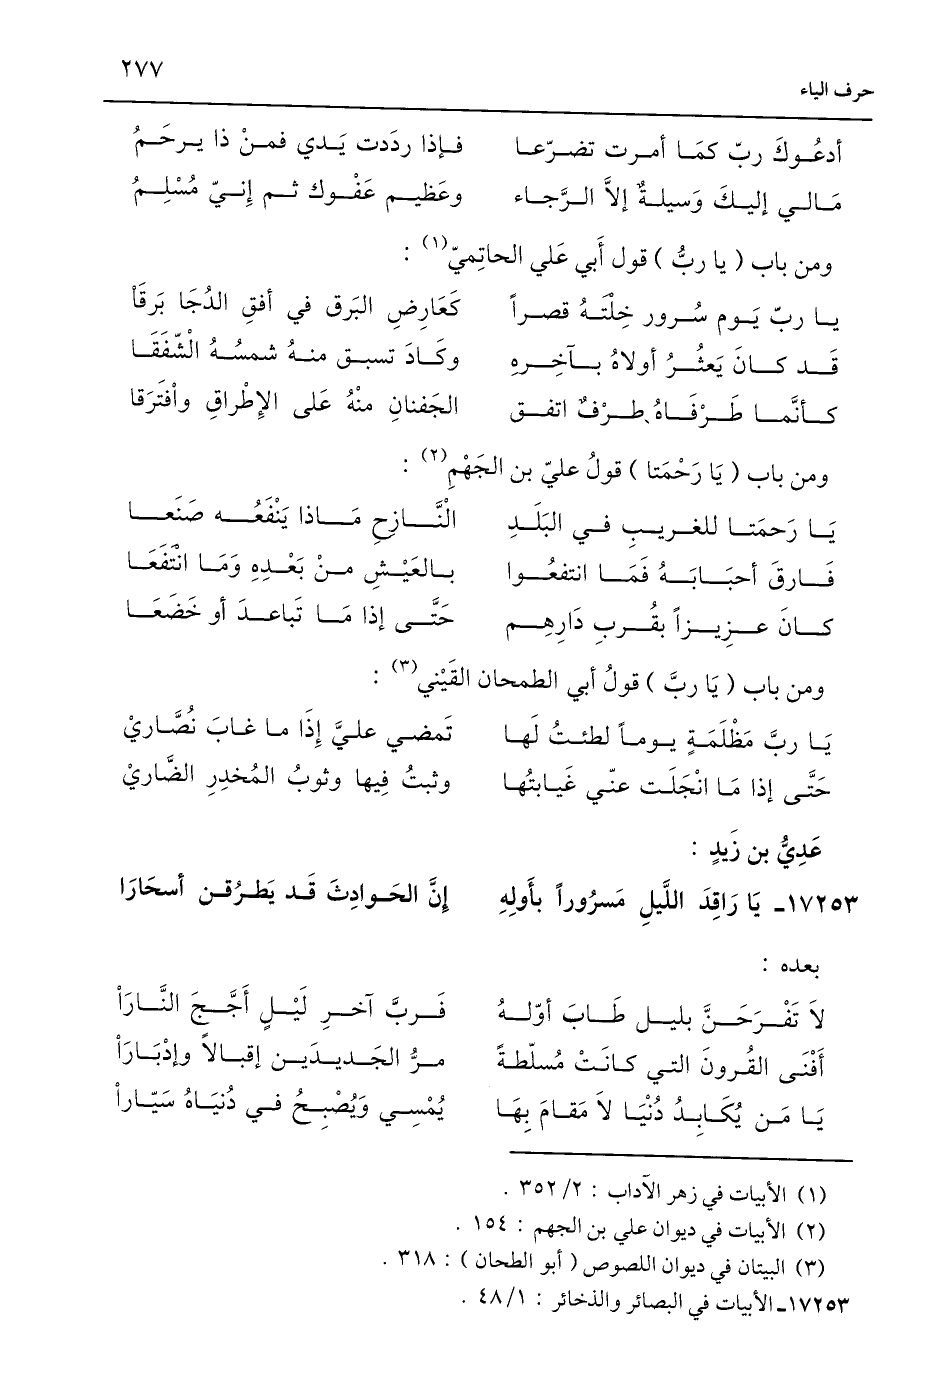 ٢٧٧
حرف الياء
أدعُوكَ ربّ كمَا أمرت تضرّعا فإذا ردَدت يَدي فمنْ ذا يرحَمُ
مَالي إليكَ وَسيلةٌ إلاَّ الرَّجاء وعَظيم عَفْوك ثم إنيّ مُسْلِمُ
ومن باب ( يا ربُّ ) قول أَبي عَلي الحاتِميّ(١) :
يا ربّ يَوم سُرور خِلْتَهُ قصراً كَعَارِضِ البَرق في أفقِ الدُجَا بَرقَا
قَد كانَ يَعثُرُ أولاهُ بآخِره وكَادَ تسبق منهُ شمسُهُ الشَّفَقَا
كأنَّما طَرْفَاهُ طرْفٌ اتفق الجَفنانِ منْهُ عَلى الإطْراقِ وأفتَرَقا
ومن باب ( يَا رَحْمَتا ) قولُ عليّ بن الجَهْمِ(٢) :
يَا رَحمَتا للغريبِ في البَلَدِ النَّازحِ مَاذا بِنَفْعِه صَنَعا
فَارقَ أحبَابَهُ فمَا انتفعُوا بالعَيْشِ منْ بَعْدِهِ وَمَا انْتَفَعَا
كانَ عزيزاً بقُربِ دَارِهِم حَتَّى إذا مَا تَباعدَ أو خَضَعَا
ومن باب ( يَا ربَّ ) قولُ أبي الطمحان القَيْني(٣) :
يَا ربَّ مَظْلَمَةٍ يوماً لطئتُ لَها تَمضي عليَّ إِذَا ما غابَ نُصَّاريْ
حَتَّى إذا مَا انْجَلَت عنّي غَيابتُها وثبتُ فِيها وثوبُ المُخدِرِ الضَّاريْ
عَدِيُّ بن زَيدٍ :
١٧٢٥٣ـ يَا رَاقِدَ اللَّيلِ مَسرُوراً بأَولهِ إنَّ الحَوادِثَ قَد يَطرُقن أسحَارَا
بعده :
لاَ تَفْرَحَنَّ بليل طَابَ أوّلهُ فَربَّ آخرِ لَيْلٍ أَجَّجَ النَّارَا
أَفْنَى القُرونَ التي كانَتْ مُسلّطةً مرُّ الجَديدَين إقبالاً وإدْبَارَا
يَا مَن يُكَابِدُ دُنْيَا لاَ مَقامَ بِهَا يُمْسِي وَيُصْبحُ في دُنيَاهُ سَيّاراً
(١) الأبيات في زهر الآداب : ٢/ ٣٥٢ .
(٢) الأبيات في ديوان علي بن الجهم : ١٥٤ .
(٣) البيتان في ديوان اللصوص ( أبو الطحان ) : ٣١٨ .
١٧٢٥٣ـ الأبيات في البصائر والذخائر : ٤٨/١ .